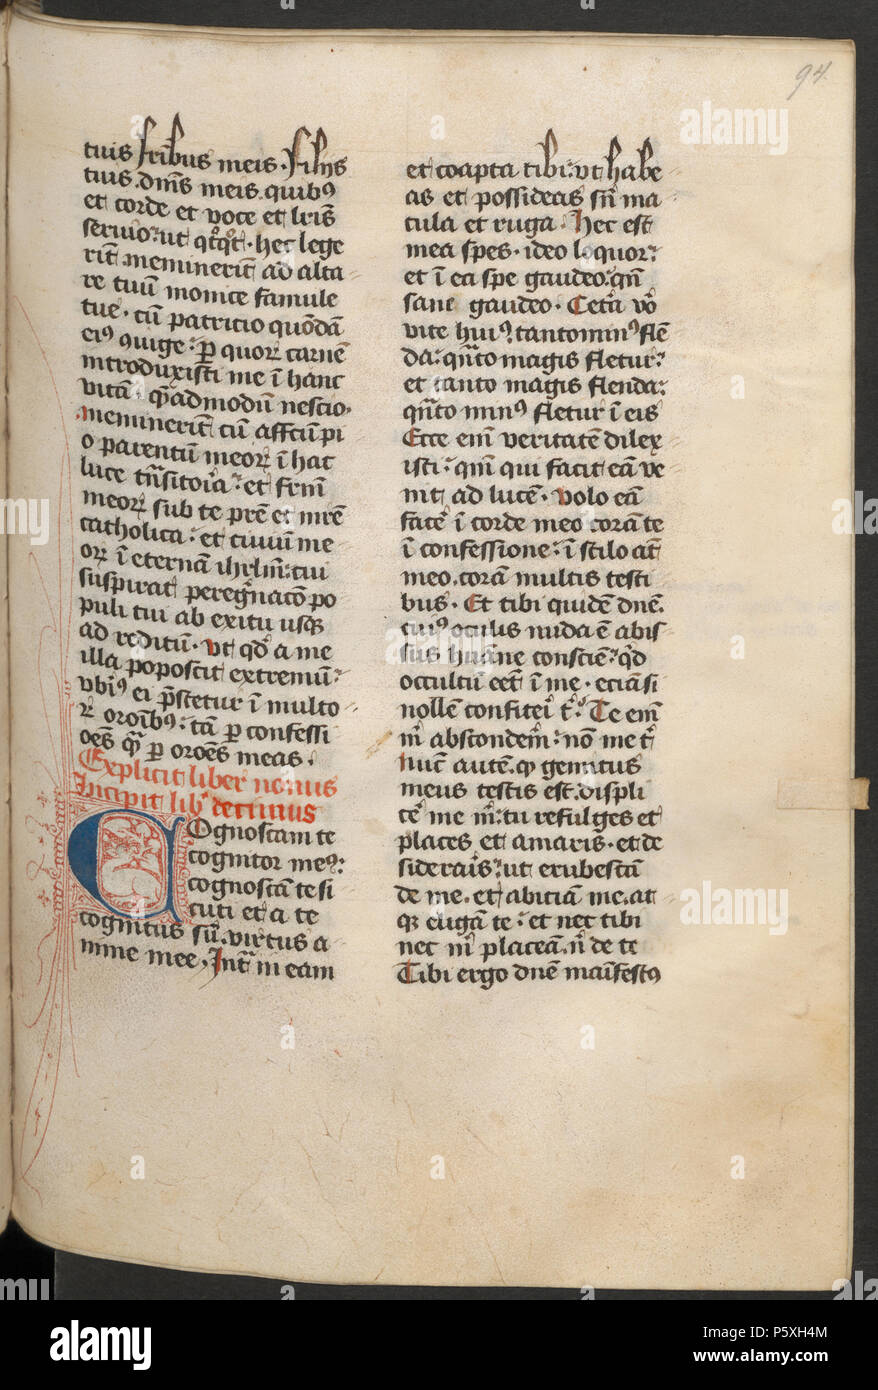 94
tuis fr̄ibus meis · filijs
tuis · dn̄is meis · quibꝰ
et corde et voce et lr̄is
seruio · ut qͦtqͦt · hec lege
rīt meminerīt ad alta
re tuū monice famule
tue · cū patricio quōdā
eiꝰ ꝯiuge · ꝑ quoꝝ carnē
introduxisti me ī hanc
vitā · qͣadmodū nescio ·
meminerīt cū affcū pi
o parentū meoꝝ ī hac
luce trāsitoria · et frm̄
meoꝝ sub te pr̄e et mr̄e
catholica · et ciuiū me
oꝝ ī eternā ihrlm̄ · cui
suspirat peregͥnacō po
puli tui ab exitu usqꝫ
ad reditū · ut qͩ a me
illa poposcit extremū ·
vbͥꝰ ei p̄stetur ī multo
ꝝ oroīb̄ꝰ · tā ꝑ confessi
oēs qͣ ꝑ oroēs meas ·
Explicit liber nonus
Incipit lib' decimus
Cognoscam te
cognitor meꝰ ·
cognoscā te si
cuti et a te
cognitus sū · virtus a
nime mee · Intͣ in eam
et coapta tibi · ut habe
as et possideas sn̄ ma
cula et ruga · Hec est
mea spes · ideo loquor ·
et ī ea spe gaudeo · qn̄
sane gaudeo · Ceta vͦo
vite huiꝰ · tantominꝰ flē
da · qn̄to magis fletur ·
et tanto magis flenda ·
qn̄to minꝰ fletur ī eis
Ecce em̄ veritatē dilex
isti · qm̄ qui facit eā ve
nit ad lucē · Volo eā
facē ī corde meo corā te
ī confessione · ī stilo at̄
meo · corā multis testi
bus · Et tibi quidē dn̄e ·
cuiꝰ oculis nuda ē abis
sus hūane consciē · qͩ
occultū eēt ī me · eciā si
nollē confiteͥ tͥ · Te em̄
mͥ absconderm̄ · nō me tͥ
Nūc autē · qꝫ gemitus
meus testis est · displi
cē me mͥ · tu refulges et
places et amaris · et de
sideraīs · ut erubescā
de me · et abiciā me · at
qꝫ eligā te · et nec tibi
nec mͥ placeā · nͥ de te
Tibi ergo dn̄e maīfestꝰ
alamy
Image ID: P5XH4M
www.alamy.com